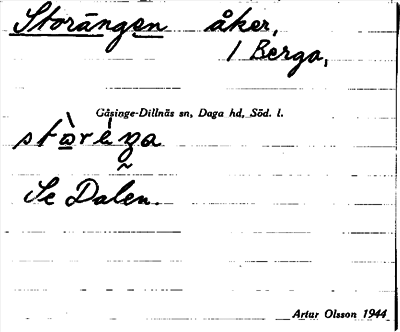 Storängen åker,
1 Berga,
Gåsinge-Dillnäs sn, Daga hd, Söd. l.
Se Dalen.
Artur Olsson 1944